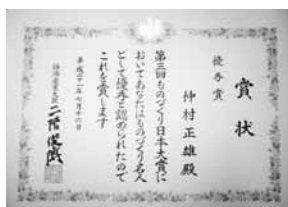 賞状
優秀賞
仲村正雄殿
第三回ものづくり日本大賞に
おいてあなたはものづくり名人
として優秀と認められたので
これを賞します
平成二十一年七月十六日
経済産業大臣 二階俊博